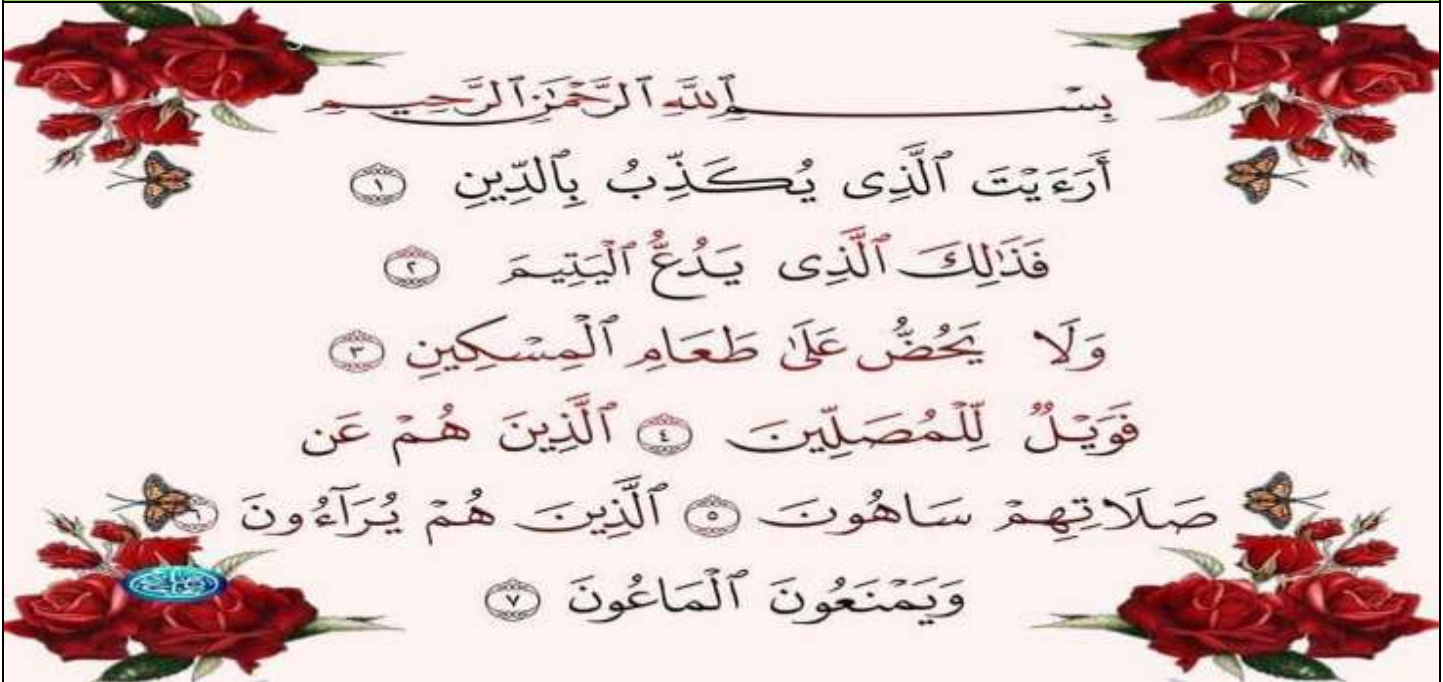 بِسْمِ ٱللَّهِ ٱلرَّحْمَٰنِ ٱلرَّحِيمِ
أَرَءَيْتَ ٱلَّذِى يُكَذِّبُ بِٱلدِّينِ ١
فَذَٰلِكَ ٱلَّذِى يَدُعُّ ٱلْيَتِيمَ ٢
وَلَا يَحُضُّ عَلَىٰ طَعَامِ ٱلْمِسْكِينِ ٣
فَوَيْلٌ لِّلْمُصَلِّينَ ٤ ٱلَّذِينَ هُمْ عَن
صَلَاتِهِمْ سَاهُونَ ٥ ٱلَّذِينَ هُمْ يُرَآءُونَ ٦
وَيَمْنَعُونَ ٱلْمَاعُونَ ٧